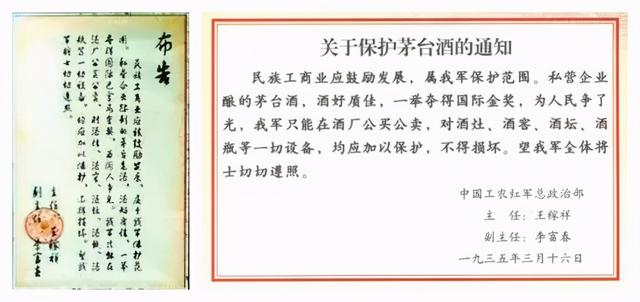 布告
民族工商业应该鼓励发展，属于我军保护范
围。私营企业酿制的茅台老酒，酒好质佳，一举
夺得国际巴拿马金奖，为国人争光。我军只能在
酒厂公买公卖，对酒灶、酒窖、酒坛、酒甑、酒
瓶等一切设备，均应加以保护，不得损坏。望我
军将士切切遵照。
主任 王稼祥
副主任 李富春
关于保护茅台酒的通知
民族工商业应鼓励发展，属我军保护范围。私营企业
酿的茅台酒，酒好质佳，一举夺得国际金奖，为人民争了
光，我军只能在酒厂公买公卖，对酒灶、酒客、酒坛、酒
瓶等一切设备，均应加以保护，不得损坏。望我军全体将
士切切遵照。
中国工农灴军总政治部
主 任：王稼祥
副主任：李富春
一九三五年三月十六日